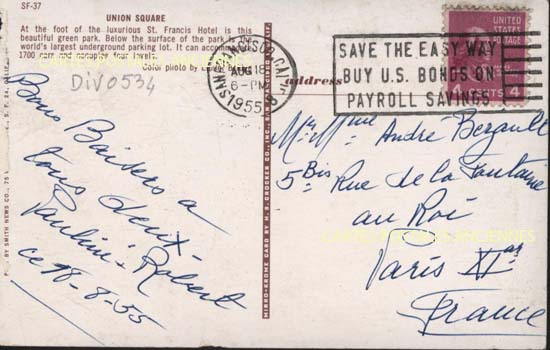 SF-37
UNION SQUARE
At the foot of the luxurious St. Francis Hotel is this
beautiful green park. Below the surface of the park is the
world's largest underground parking lot. It can accommodate
1700 cars and occupies four levels.
Color photo by
DIV0534
Bons Baisers a
tous deux
Pauline & Robert
ce 18-8-55
PUB. BY SMITH NEWS CO., 75
S. F. 24,
MIRRO-KROME CARD BY H. S. CROCKER CO., INC.
SAN FRANCISCO, CALIF.
AUG 18
6-PM
1955
SAVE THE EASY WAY
BUY U.S. BONDS ON
PAYROLL SAVINGS
UNITED
STATES
POSTAGE
4 CENTS 4
address
Mr & Mme André Bezault
5 Bis Rue de la Fontaine
au Roi
Paris XI ar
France
CARTES POSTALES ANCIENNES